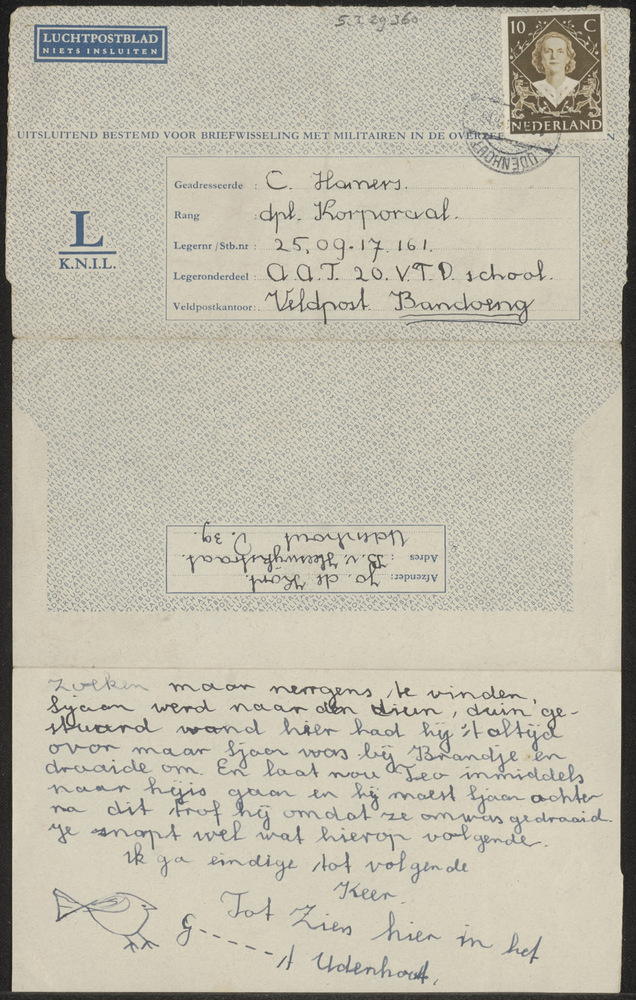 5.3.29360
LUCHTPOSTBLAD
NIETS INSLUITEN
10 C
NEDERLAND
UDENHOUT
UITSLUITEND BESTEMD VOOR BRIEFWISSELING MET MILITAIREN IN DE OVERZEE
L
K.N.I.L.
Geadresseerde : C. Hamers.
Rang : dpl. Korporaal.
Legernr /Stb.nr : 25.09.17.161.
Legeronderdeel : A.A.T. 20. V.T.D. school.
Veldpostkantoor: Veldpost Bandoeng
Afzender: Jo. de Kort.
Adres : B. v. Heeswijkstraat.
Udenhout J. 39.
zoeken maar nerrgens te vinden
Sjaan werd naar den dien, duin ge-
stuurd wand hier had hij 't altijd
over maar Sjaan was bij Brandje en
draaide om. En laat nou Teo inmiddels
naar heijis gaan en hij moest Sjaan achter
na dit trof hij omdat ze omwas gedraaid.
Je snapt wel wat hierop volgende.
Ik ga eindige tot volgende
Keer.
Tot Ziens hier in het
G------ 't Udenhout,